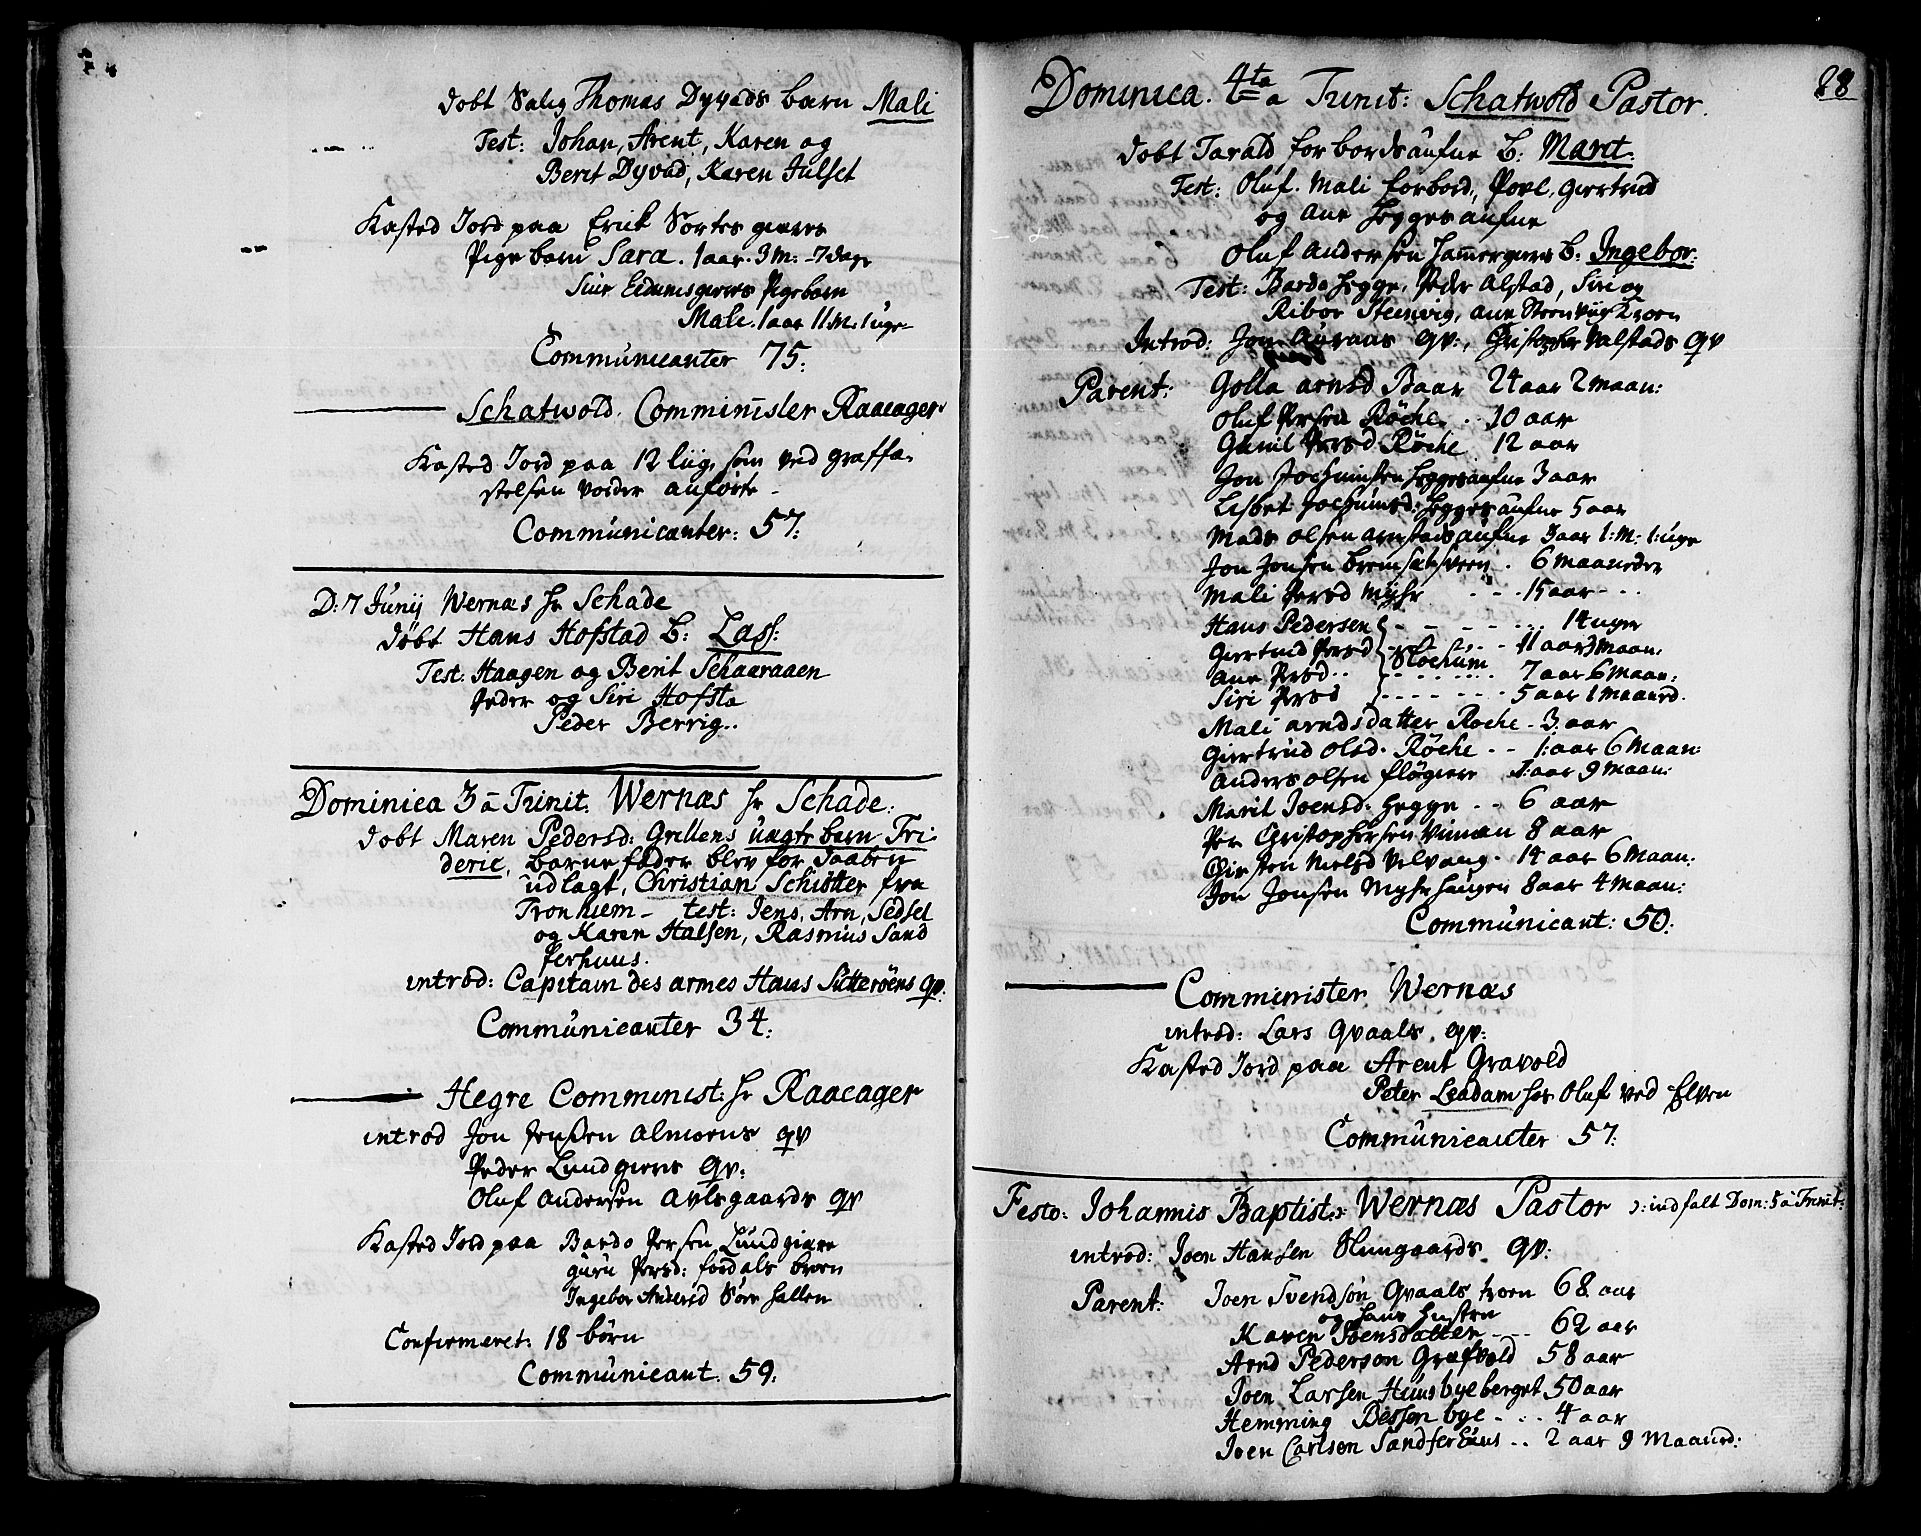 Døbt Salig Thomas Dyvads barn Mali
Test: Johan, Arent, Karen og
Berit Dyvad, Karen Julset
Kasted Jord paa Erick Sortes gieres
Pige barn Sara. 1 aar. 3 M: 7 dage
Siur Eidumsgieres Pigebarn
Mali. 1 aar 11 M. 1 uge
Communicanter 75.
Schatwold. Comminister Raaeager
Kasted Jord paa 12 liig, som ved graffæ-
stelsen vorder anførte
Communicanter: 57.
D: 7 Junij Wernæs hr Schade
døbt Hans Hofstad b: Lass:
Test: Haagen og Berit Schaaraaen
Peder og Siri Hofsta
Peder Berrig..
Dominica 3 â Trinit. Wernæs hr Schade.
døbt Maren Pedersd: Grillens uægte barn Fri-
deric, barnefader blev for daaben
udlagt, Christian Schiøtter fra
Tronhiem - test: Jens, Arn, Sedsel
og Karen Halsen, Rasmus Sand
ferhuus.
introd: Capitain des armes Hans Sutterøens qv.
Communicanter 34.
Hegre Comminist: hr Raaeager
introd Jon Jensen Almoens qv
Peder Lundgieres qv:
Oluf Andersen Avlsgaards qv
Kasted Jord paa Bardo Persen Lundgiere
guru Persd: fordals broen
Ingebor Andersd Sørr hallen
Confirmeret: 18 børn
Communicant. 59.
88
Dominica. 4ta a Trinit: Schatwold Pastor.
døbt Tarald forbordsaufne b: Marit.
Test: Oluf. Mali forbord, Povl, giertrud
og ane heggesaufne
Oluf andersen hammergieres b: Ingebor:
Test: Bardo hegge, Peder Alstad, Siri og
Ribor Steinvig, ane Steenviig Troen
Introd: Jon Auraas qv:, Christopher Valstads qv
Parent: Golla arnsd Baar 24 aar 2 maan:
Oluf Persen Røche .. 10 aar
Gunil Persd Røche 12 aar
Jon Jochumsen heggesaufne 3 aar
Lisbet Jochumsd: heggesaufne 5 aar
Mads olsen arnstadsaufne 3 aar 1: M: 1: uge
Jon Jonsen bremsetsveen . 6 maaneder
Mali Persd Myhr - - - 15 aar - - -
Hans Pedersen - - - - 14 uger
Giertrud Persd - - - 11 aar 3 maan:
Stochum
Ane Persd .. - - - 7 aar 6 Maan:
Siri Persd - - - 5 aar 1 maaned.
Mali arndsdatter Røche - 3. aar
Giertrud olsd. Røche - - 1: aar 6 Maan:
Anders olsen fløgiere 1: aar 9 maan:
Marit Joensd: hegge - - 6 aar
Per Christophersen Viman 8 aar
Chirsten Nielsd Velvang. 14 aar 6 Maan:
Jon Jonsen Myhrhaugen 8 aar 4 maan:
Communicant: 50.
Comminister Wernæs
introd: Lars Qvaals. qv:
Kasted Jord paa Arent Gravold
Peter Leadam hos Oluf ved Elven
Communicanter 57.
Festo: Johannis Baptistæ Wernæs Pastor ɔ: indfalt Dom: 5 a Trinit:
introd: Joen Hansen qv:
Parent: Joen Svendsøn Qvaals troen 68 aar
og hans hustru
Karen Joensdatter --- 62 aar
Arnd Pederson Grafvold 58 aar
Joen Larsen Huusbyeberget 50 aar
Hemming Bessen bye - . . 4 aar
Joen Carlsen Sandferhuus .. 2 aar 9 Maaned: